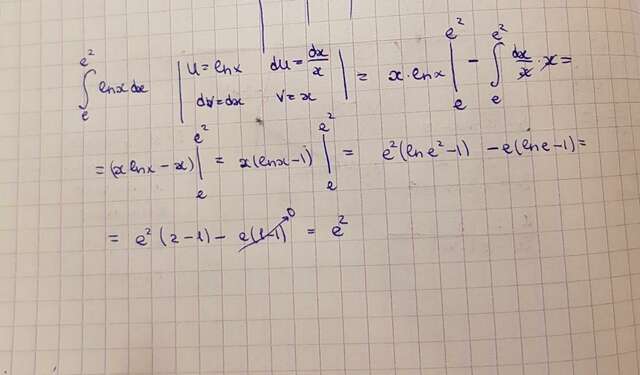 ∫_e^{e²} lnx dx | u = lnx du = dx/x dv = dx v = x | = x·lnx |_e^{e²} − ∫_e^{e²} dx/x · x =
= (x lnx − x) |_e^{e²} = x(lnx − 1) |_e^{e²} = e²(ln e² − 1) − e(ln e − 1) =
= e²(2 − 1) − e(1 − 1) → 0 = e²